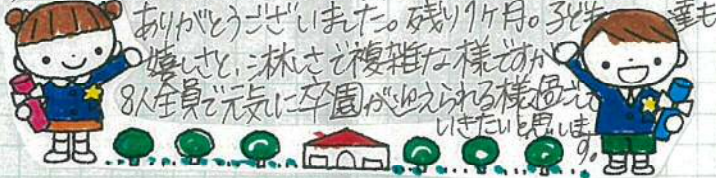 ありがとうございました。残り1ヶ月。子ども達も
嬉しさと、淋しさで複雑な様ですが
8人全員で元気に卒園が迎えられる様、過ごして
いきたいと思います。